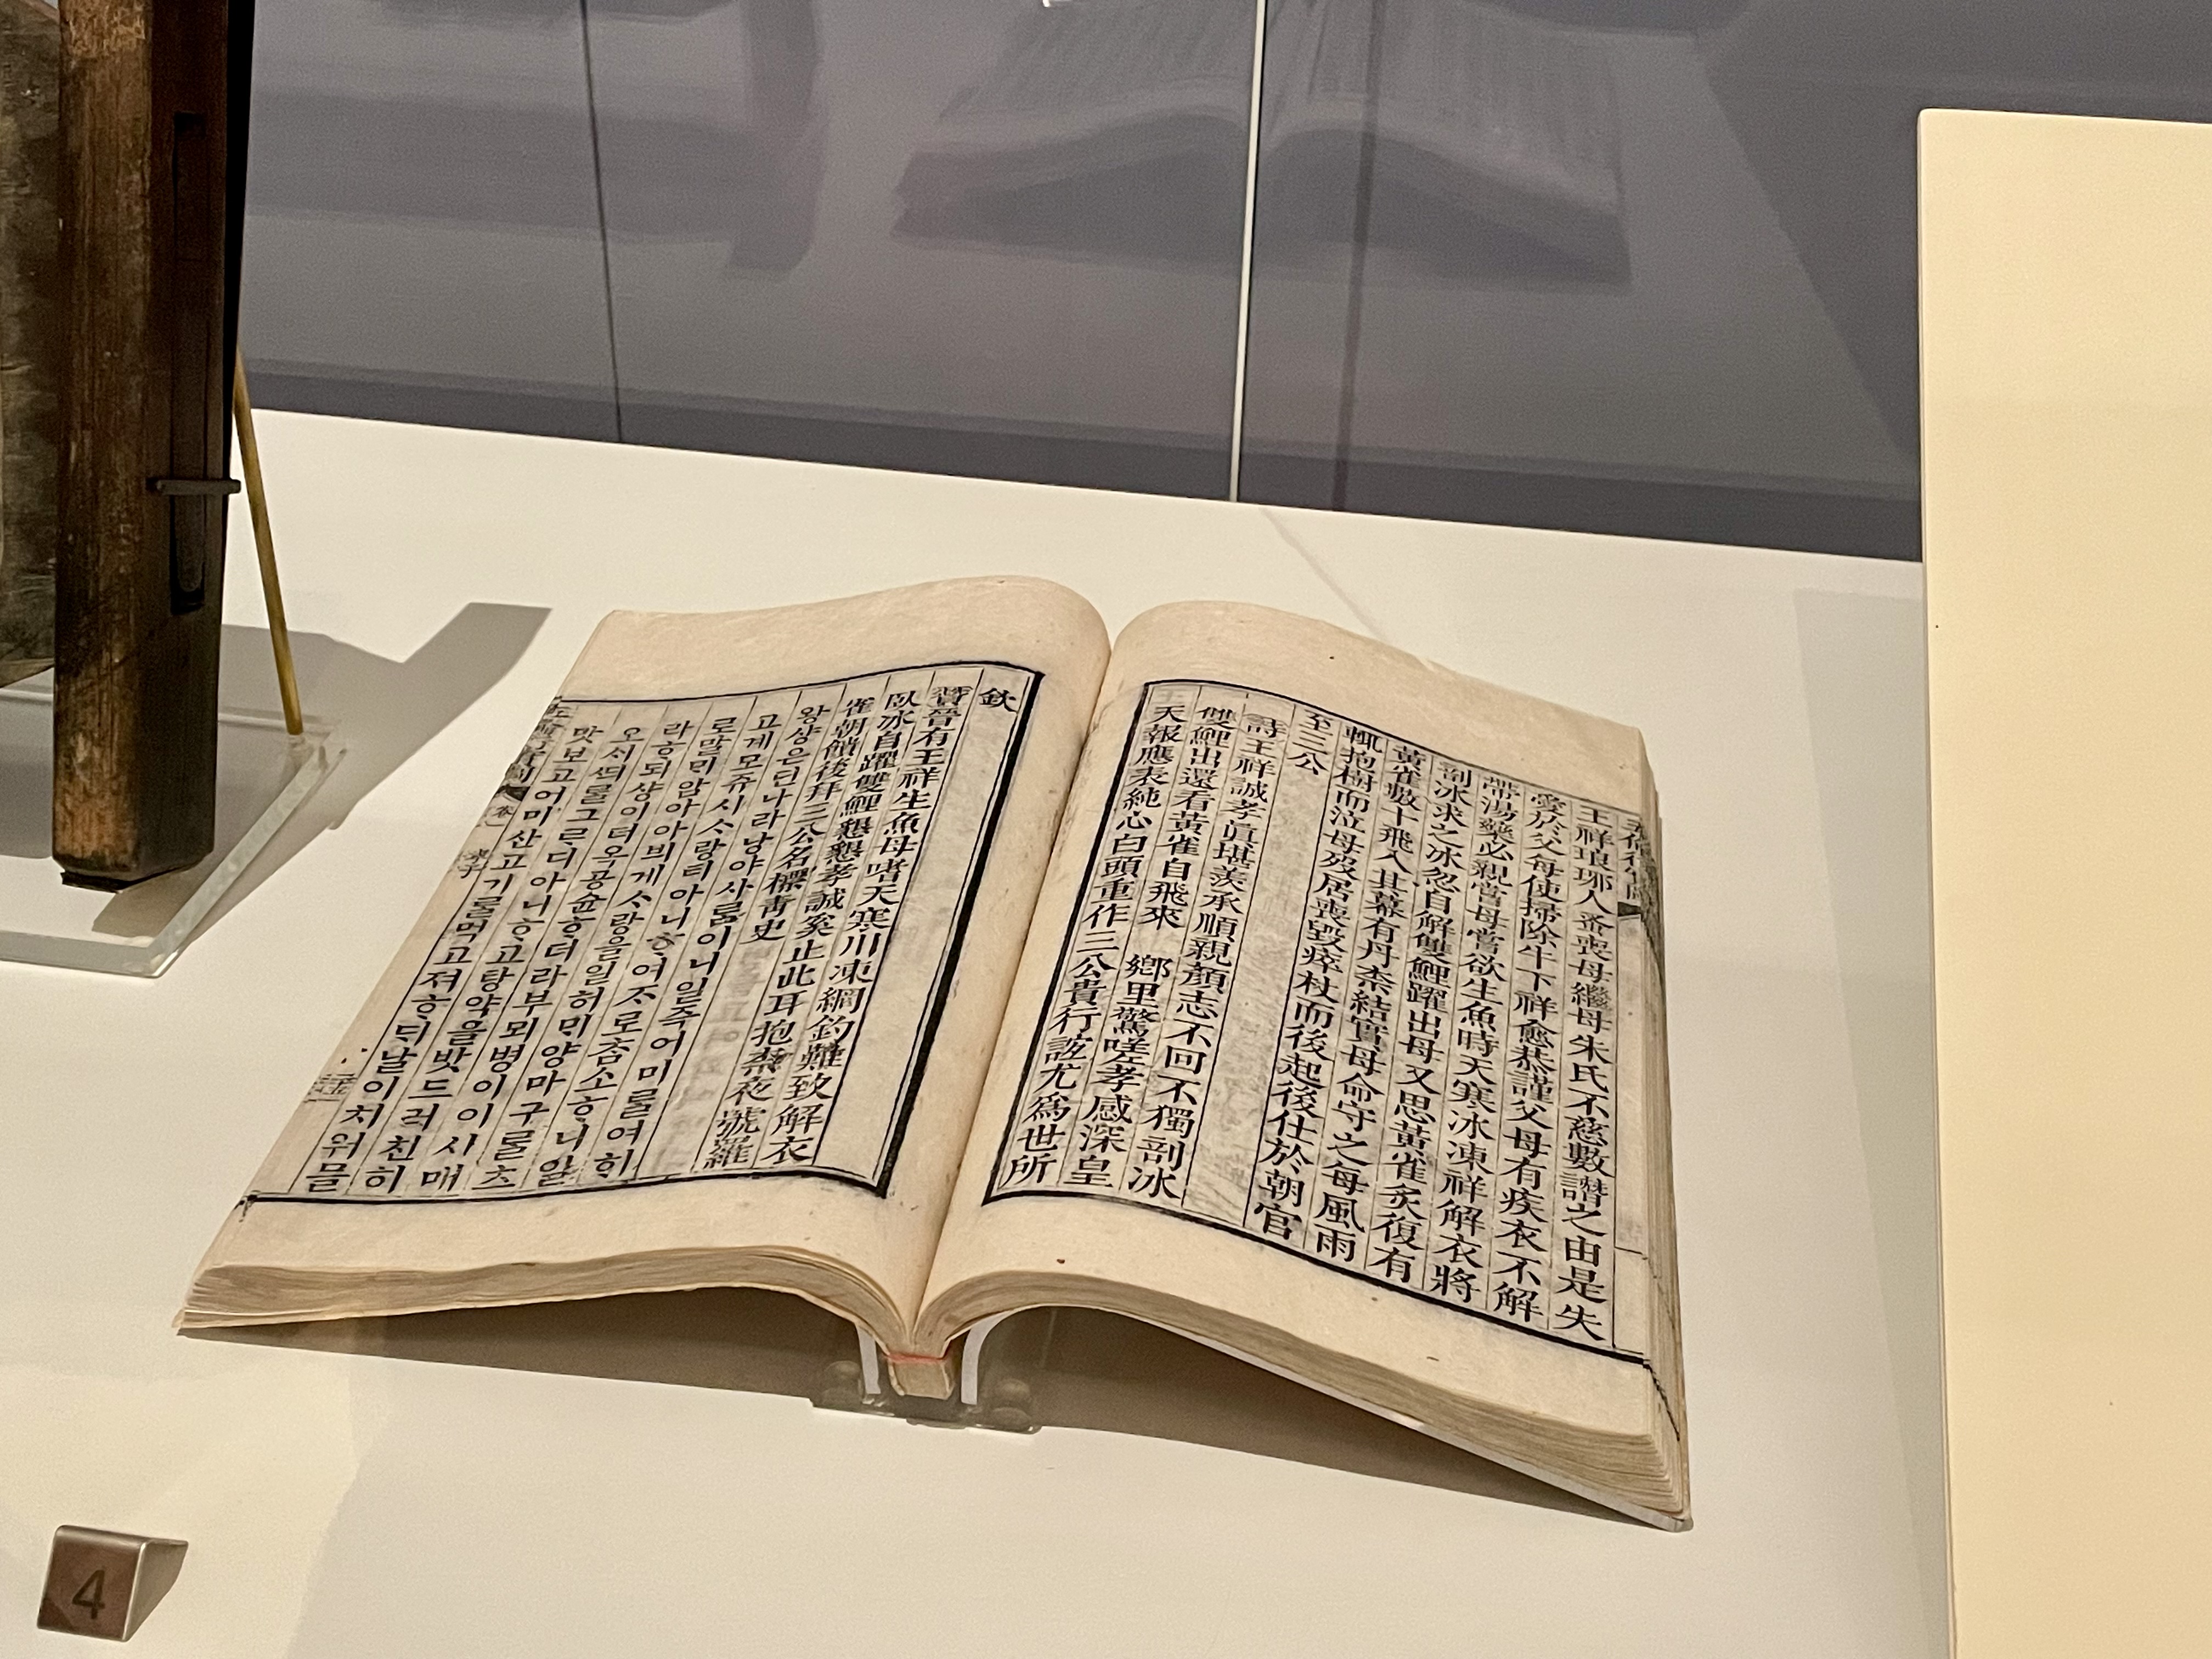 王祥琅琊人蚤喪母繼母朱氏不慈數譖之由是失
愛於父母使掃除牛下祥愈恭謹父母有疾衣不解
帶湯藥必親嘗母嘗欲生魚時天寒冰凍祥解衣將
剖冰求之冰忽自解雙鯉躍出母又思黃雀炙復有
黃雀數十飛入其幕有丹柰結實母命守之每風雨
輒抱樹而泣母歿居喪毀瘁杖而後起後仕於朝官
至三公
詩王祥誠孝眞堪羨承順親顏志不回不獨剖冰
雙鯉出還看黃雀自飛來 鄕里驚嗟孝感深皇
天報應表純心白頭重作三公貴行誼尤爲世所
欽
贊晉有王祥生魚母嗜天寒川凍網釣難致解衣
臥冰自躍雙鯉懇懇孝誠奚止此耳抱柰夜號羅
雀朝饋後拜三公名標靑史
왕샹은딘나라낭야사ᄅᆞᆷ이니일즉어미ᄅᆞᆯ여희
고계모쥬시ᄉᆞ랑티아니ᄒᆞ여ᄌᆞ로참소ᄒᆞ니알
로말ᄆᆡ암아아븨게ᄉᆞ랑을일허ᄆᆡ양마구ᄅᆞᆯ츠
라ᄒᆞ되샹이더옥공슌ᄒᆞ더라부뫼병이이시매
오ᄉᆡ ᄯᅴᄅᆞᆯ그르디아니ᄒᆞ고탕약을밧드러친히
맛보고어미산고기ᄅᆞᆯ먹고져ᄒᆞᄃᆡ날이치워믈
4